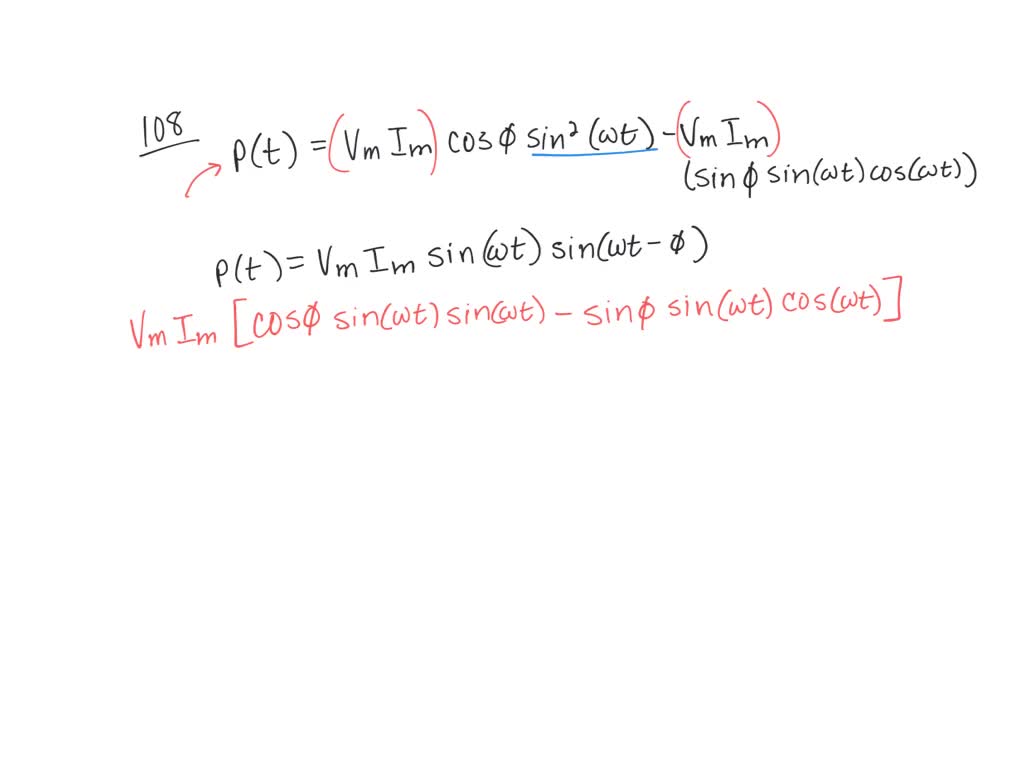 108
P(t) = (Vm Im) cos ϕ sin² (ωt) - (Vm Im)
(sin ϕ sin(ωt) cos(ωt))
P(t) = Vm Im sin (ωt) sin(ωt - ϕ)
Vm Im [cosϕ sin(ωt) sin(ωt) - sinϕ sin(ωt) cos(ωt)]